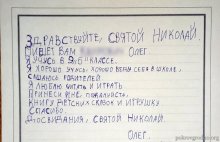 ЗДРАВСТВУЙТЕ, СВЯТОЙ НИКОЛАЙ.
ПИШЕТ ВАМ ОЛЕГ.
Я УЧУСЬ В 5 КЛАССЕ.
Я ХОРОШО УЧУСЬ, ХОРОШО ВЕДУ СЕБЯ В ШКОЛЕ,
СЛУШАЮСЬ РОДИТЕЛЕЙ
Я ЛЮБЛЮ ЧИТАТЬ И ИГРАТЬ
ПРИНЕСИ МНЕ, ПОЖАЛУЙСТА,
КНИГУ ДЕТСКИХ СКАЗОК И ИГРУШКУ
СПАСИБО.
ДОСВИДАНИЯ, СВЯТОЙ НИКОЛАЙ.
ОЛЕГ..